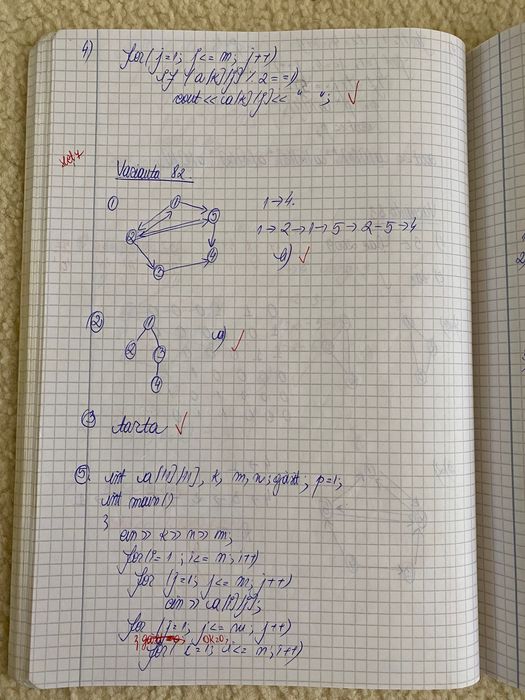 4) for(j=1; j<=m; j++)
if (a[k][j] % 2==1)
cout<<a[k][j]<<" ";
Varianta 82
①
1 5
2
4
3
1→4.
1→2→1→5→2-5→4
b)
②
1
2 3
4
a)
③ tarta
⑤. int a[11][11], k, m, n, gasit, p=1;
int main()
{
cin>>k>>n>>m;
for(i=1; i<=n; i++)
for (j=1; j<=m; j++)
cin>>a[i][j];
for (j=1; j<=m; j++)
{ ok=0;
for(i=1; i<=n; i++)